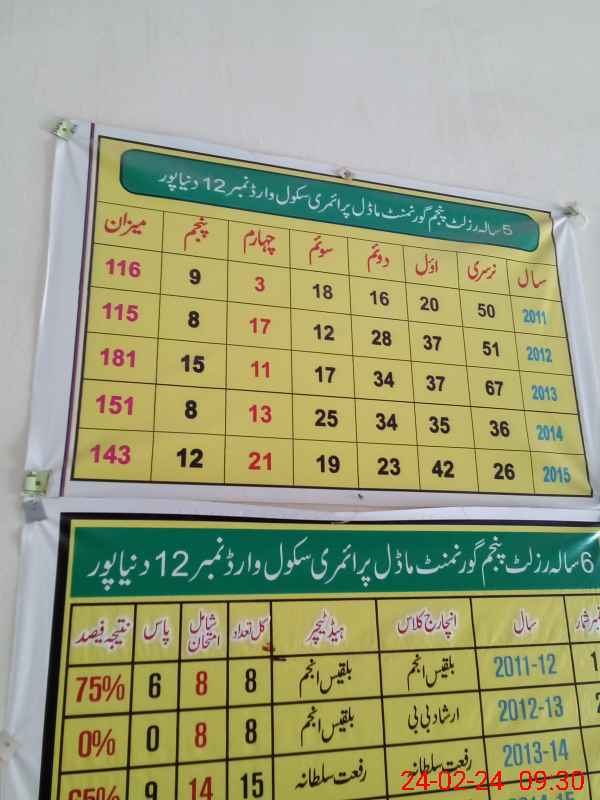 5 سالہ رزلٹ پنجم گورنمنٹ ماڈل پرائمری سکول وارڈ نمبر 12 دنیاپور
سال نرسری اوّل دوئم سوئم چہارم پنجم میزان
2011 50 20 16 18 3 9 116
2012 51 37 28 12 17 8 115
2013 67 37 34 17 11 15 181
2014 36 35 34 25 13 8 151
2015 26 42 23 19 21 12 143
6 سالہ رزلٹ پنجم گورنمنٹ ماڈل پرائمری سکول وارڈ نمبر 12 دنیاپور
سال انچارج کلاس ہیڈ ٹیچر کل تعداد شامل امتحان پاس نتیجہ فیصد
1 2011-12 بلقیس انجم بلقیس انجم 8 8 6 75%
2012-13 ارشاد بی بی بلقیس انجم 8 8 0 0%
2013-14 رفعت سلطانہ رفعت سلطانہ 15 14 9 65%
24-02-24 09:30